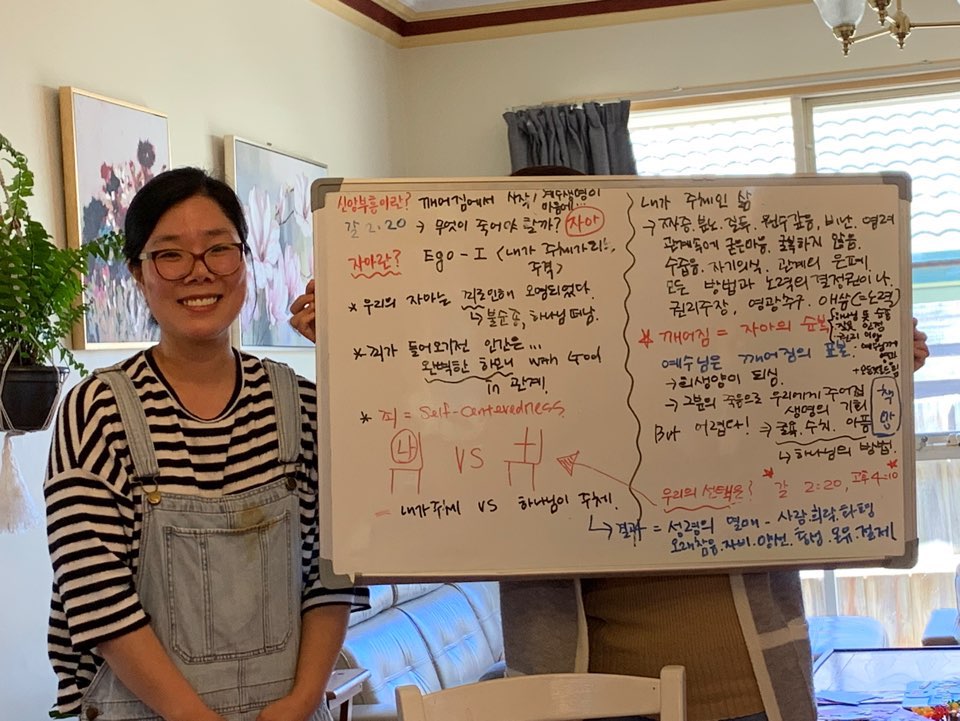 신앙부흥이란? 깨어짐에서 시작! 
갈 2:20 → 무엇이 죽어야 할까? 자아
자아란? Ego - I (내가 주체가 되는,
주격)
* 우리의 자아는 죄로인해 오염되었다.
↳ 불순종, 하나님 떠남.
* 죄가 들어오기전 인간은...
완벽한 하모니 with God
in 관계.
* 죄 = Self-centeredness
나 VS †
= 내가주체 VS 하나님이 주체.
내가 주체인 삶
→ 짜증. 분노. 질투. 원수갚음, 비난. 염려
관계속에 굳은마음. 굴복하지 않음.
수줍음. 자기의식. 관계의 은폐.
모든 방법과 노력의 결정권이 나.
권리주장, 영광추구. 애씀(=노력)
* 깨어짐 = 자아의 굴복
예수님은 깨어짐의 표본.
→ 희생양이 되심.
→ 그분의 죽음으로 우리에게 주어진
생명의 기회
But 어렵다! → 굴욕. 수치. 아픔
↳ 하나님의 방법.
우리의 선택은? * 갈 2:20, 고후 4:10 *
↳ 결과 = 성령의 열매 - 사랑.희락.화평.
오래참음.자비.양선.충성.온유.절제.